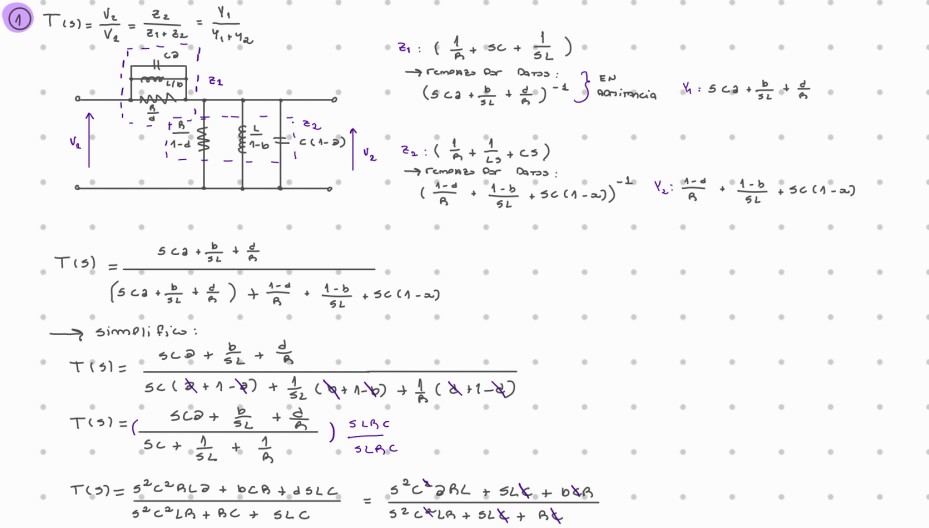 1 T(s) = V2/V2 = Z2/(Z1+Z2) = Y1/(Y1+Y2)
Ca
L/b
Z1
R/d
R/1-d
L/1-b
Z2
C(1-a)
V1
V2
Z1: (1/R + SC + 1/SL)
→ remplazo por datos:
(SCa + b/SL + d/R)^-1 } EN admitancia
Y1: SCa + b/SL + d/R
Z2: (1/R + 1/LS + CS)
→ remplazo por datos:
((1-d)/R + (1-b)/SL + SC(1-a))^-1
Y2: (1-d)/R + (1-b)/SL + SC(1-a)
T(s) = (SCa + b/SL + d/R) / ((SCa + b/SL + d/R) + (1-d)/R + (1-b)/SL + SC(1-a))
→ simplifico:
T(s) = (SCa + b/SL + d/R) / (SC(a+1-a) + 1/SL (b+1-b) + 1/R (d+1-d))
T(s) = ((SCa + b/SL + d/R) / (SC + 1/SL + 1/R)) SLRC/SLRC
T(s) = (S²C²RLa + bCR + dSLC) / (S²C²LR + RC + SLC) = (S²C²aRL + SLC + bCR) / (S²C²LR + SLC + RC)